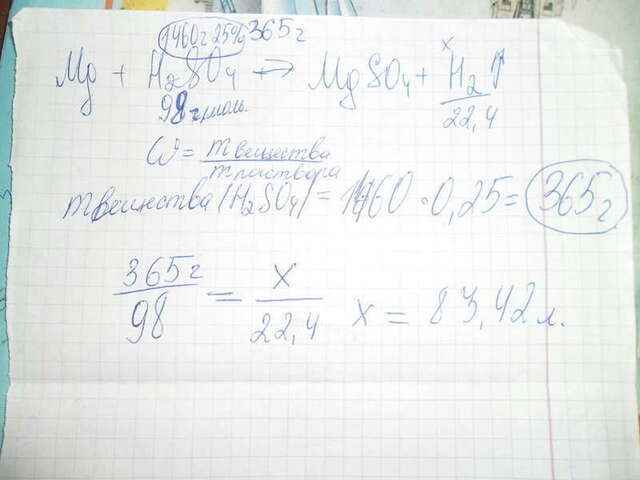 1460г 25% 365г
x
Mg + H₂SO₄ → MgSO₄ + H₂↑
98 г/моль. 22,4
ω = m вещества / m раствора
m вещества (H₂SO₄) = 1460 · 0,25 = 365г
365г / 98 = x / 22,4 x = 83,42 л.